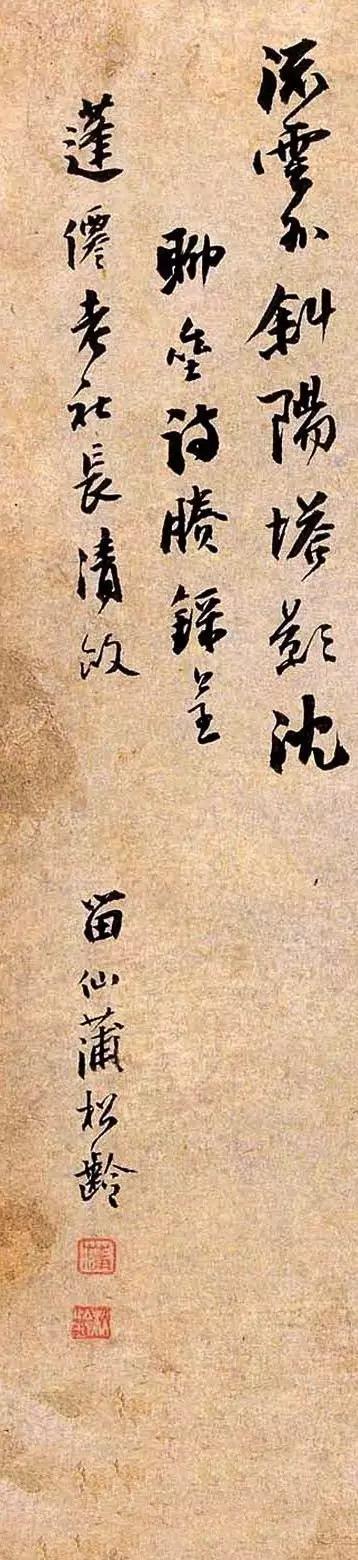 流雲外斜陽塔影沈
聊亝詩賸錄呈
蓬僊老社長清政
留仙蒲松齡